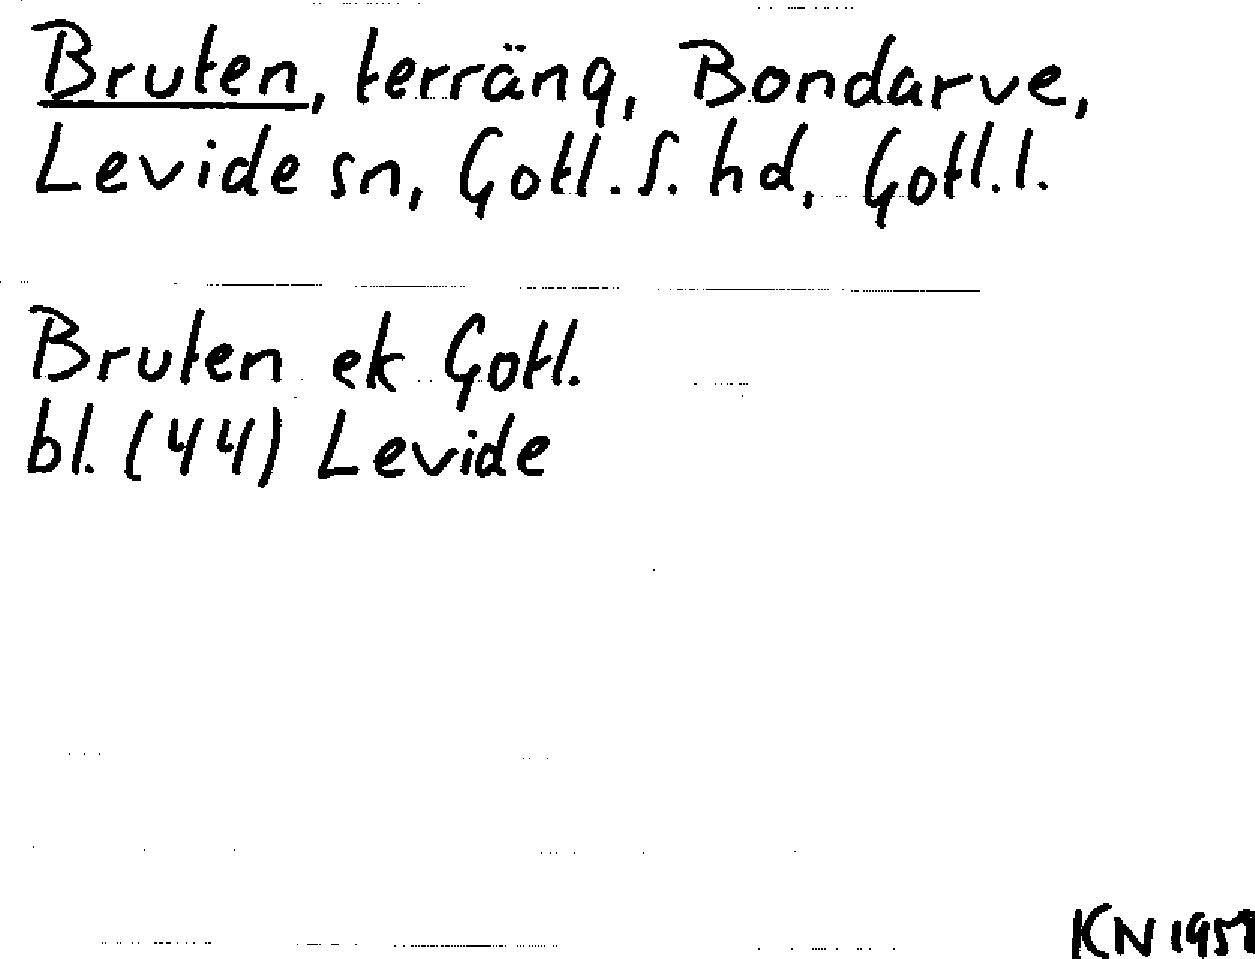 Bruten, terräng, Bondarve,
Levide sn, Gotl. S. hd, Gotl. l.
Bruten ek Gotl.
bl. (44) Levide
KN